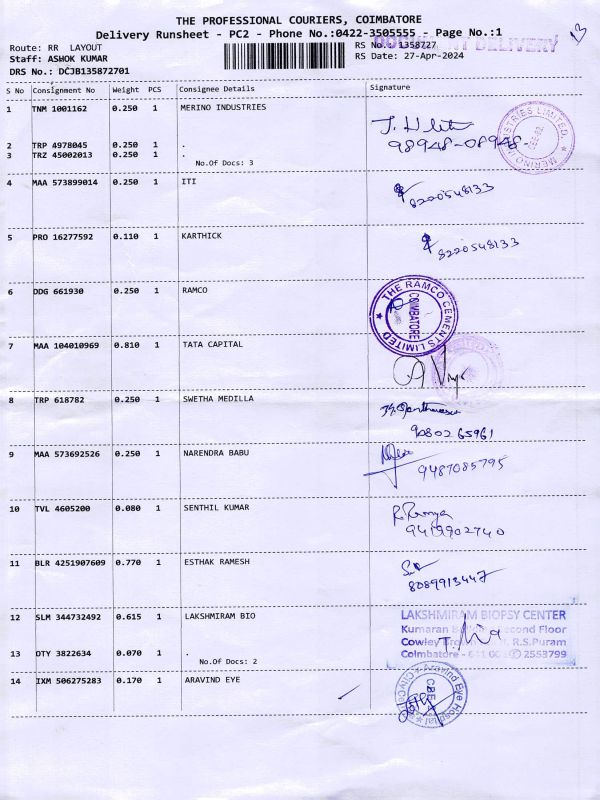 THE PROFESSIONAL COURIERS, COIMBATORE
Delivery Runsheet - PC2 - Phone No.:0422-3505555 - Page No.:1
Route: RR LAYOUT
RS No.: 1358727
DELIVERY
Staff: ASHOK KUMAR
RS Date: 27-Apr-2024
DRS No.: DCJB135872701
S No Consignment No Weight PCS Consignee Details Signature
1 TNM 1001162 0.250 1 MERINO INDUSTRIES
2 TRP 4978045 0.250 1 .
98948-08948-
3 TRZ 45002013 0.250 1 .
No.Of Docs: 3
4 MAA 573899014 0.250 1 ITI
8220548133
5 PRO 16277592 0.110 1 KARTHICK
8220548133
6 DDG 661930 0.250 1 RAMCO
THE RAMCO CEMENTS LIMITED
COIMBATORE
7 MAA 104010969 0.810 1 TATA CAPITAL
8 TRP 618782 0.250 1 SWETHA MEDILLA
9080265961
9 MAA 573692526 0.250 1 NARENDRA BABU
9487085795
10 TVL 4605200 0.080 1 SENTHIL KUMAR
R. Ramya
9419902740
11 BLR 4251907609 0.770 1 ESTHAK RAMESH
8089913447
12 SLM 344732492 0.615 1 LAKSHMIRAM BIO
LAKSHMIRAM BIOPSY CENTER
Kumaran Second Floor
Cowley R.S.Puram
Coimbatore - 2553799
13 OTY 3822634 0.070 1 .
No.Of Docs: 2
14 IXM 506275283 0.170 1 ARAVIND EYE
Aravind Eye Hospital
CBE